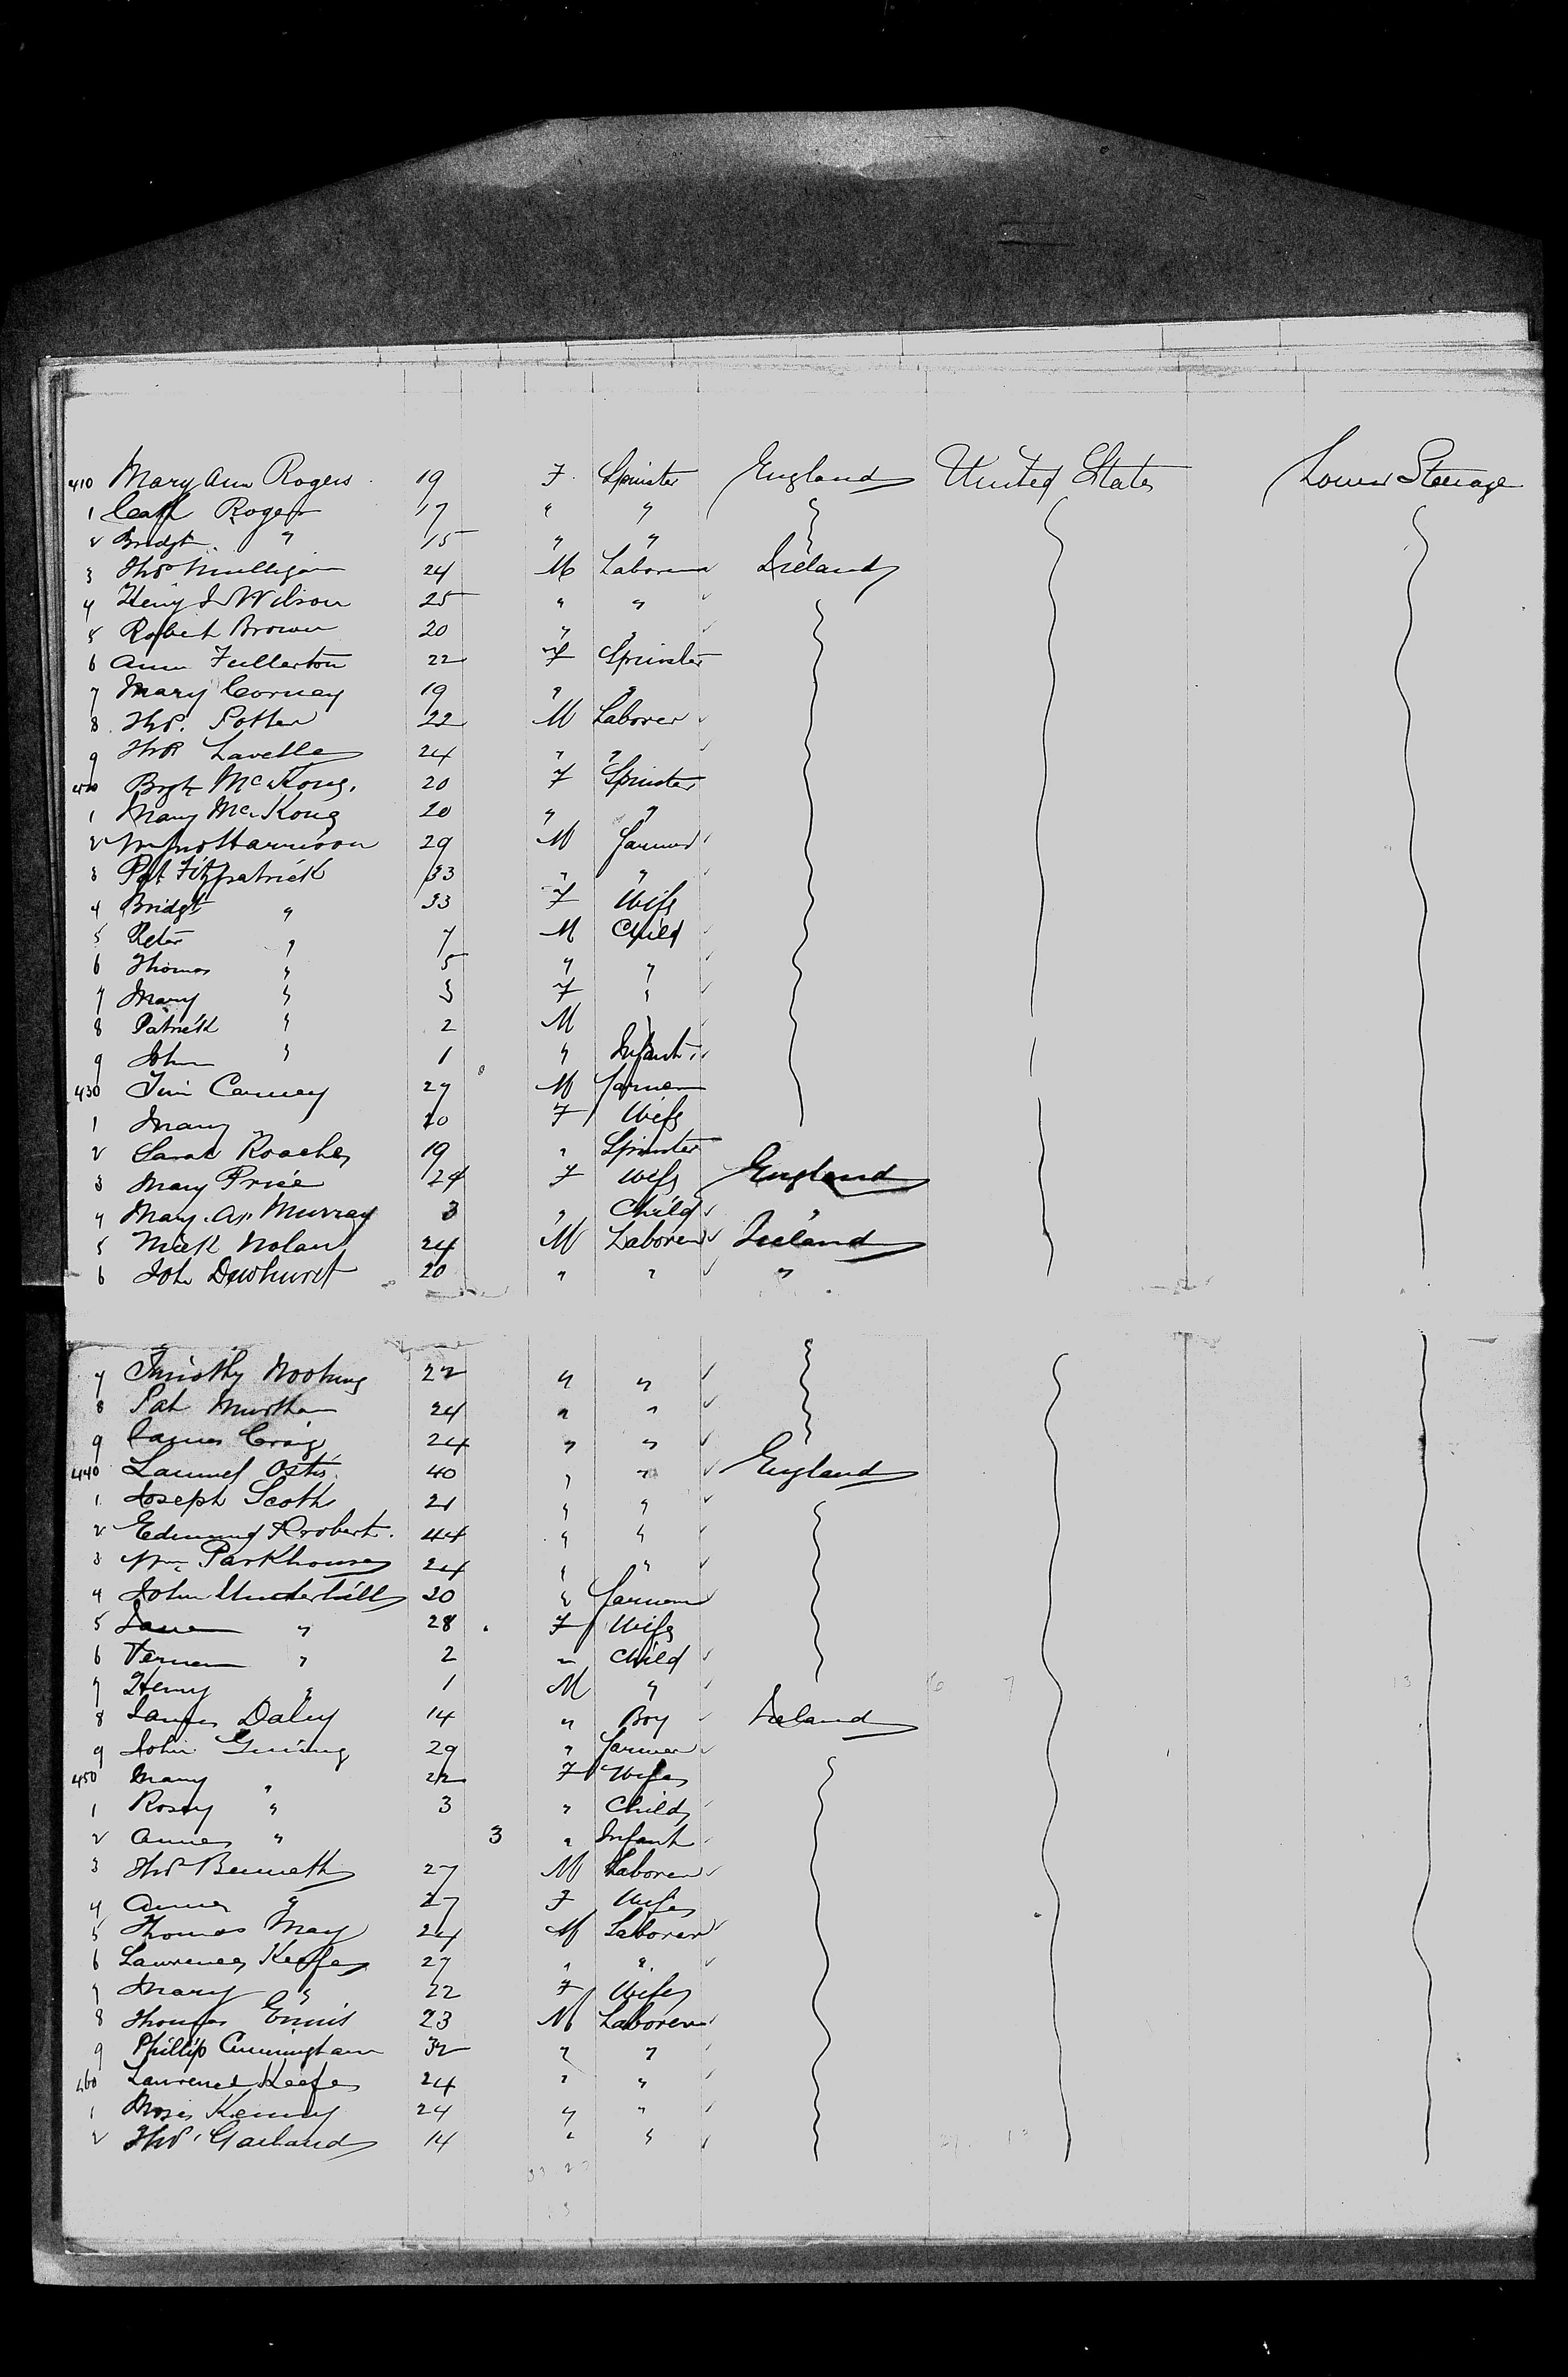 410 Mary Ann Rogers 19 F. Spinster England United States Lower Steerage
1 Cath Rogers 17 " "
2 Bridgt. " 15 " "
3 Thos Mulligan 24 M Laborer Ireland
4 Henry J Wilson 25 " "
5 Robert Brown 20 " "
6 Ann Fullerton 22 F Spinster
7 Mary Corney 19 " "
8 Thos. Potter 22 M Laborer
9 Thos Lavelle 24 " "
420 Bgt McKong. 20 F Spinster
1 Mary McKong 20 " "
2 Harrison 29 M Farmer
3 Pat Fitzpatrick 33 " "
4 Bridgt " 33 F Wife
5 Peter " 7 M Child
6 Thomas " 5 " "
7 Mary " 3 F "
8 Patrick " 2 M
9 John " 1 " Infant
430 Tim Carney 27 M Farmer
1 Mary " 20 F Wife
2 Sarah Roache 19 " Spinster
3 Mary Price 24 F Wife England
4 Mary. A. Murray 3 " Child "
5 Mick Nolan 24 M Laborer Ireland
6 John Dewhurst 20 " " "
7 Timothy 22 " "
8 Pat Murtha 24 " "
9 James Craig 24 " "
440 40 " " England
1 Joseph Scott 21 " "
2 Edmund Robert. 44 " "
3 Wm Parkhouse 24 " "
4 John Underhill 30 " Farmer
5 Jane " 28 F Wife
6 " 2 " Child
7 Henry " 1 M "
8 James Daly 14 " Boy Ireland
9 John 29 " Farmer
450 Mary " 22 F Wife
1 Rosey " 3 " Child
2 Anne " 3 " Infant
3 Thos Bennett 27 M Laborer
4 Anne " 27 F Wife
5 Thomas May 24 M Laborer
6 Lawrence Keefe 27 " "
7 Mary " 22 F Wife
8 Thomas Ennis 23 M Laborer
9 Phillip Cunningham 32 " "
460 Lawrence Keefe 24 " "
1 Moses Kenny 24 " "
2 Thos. Garland 14 " "